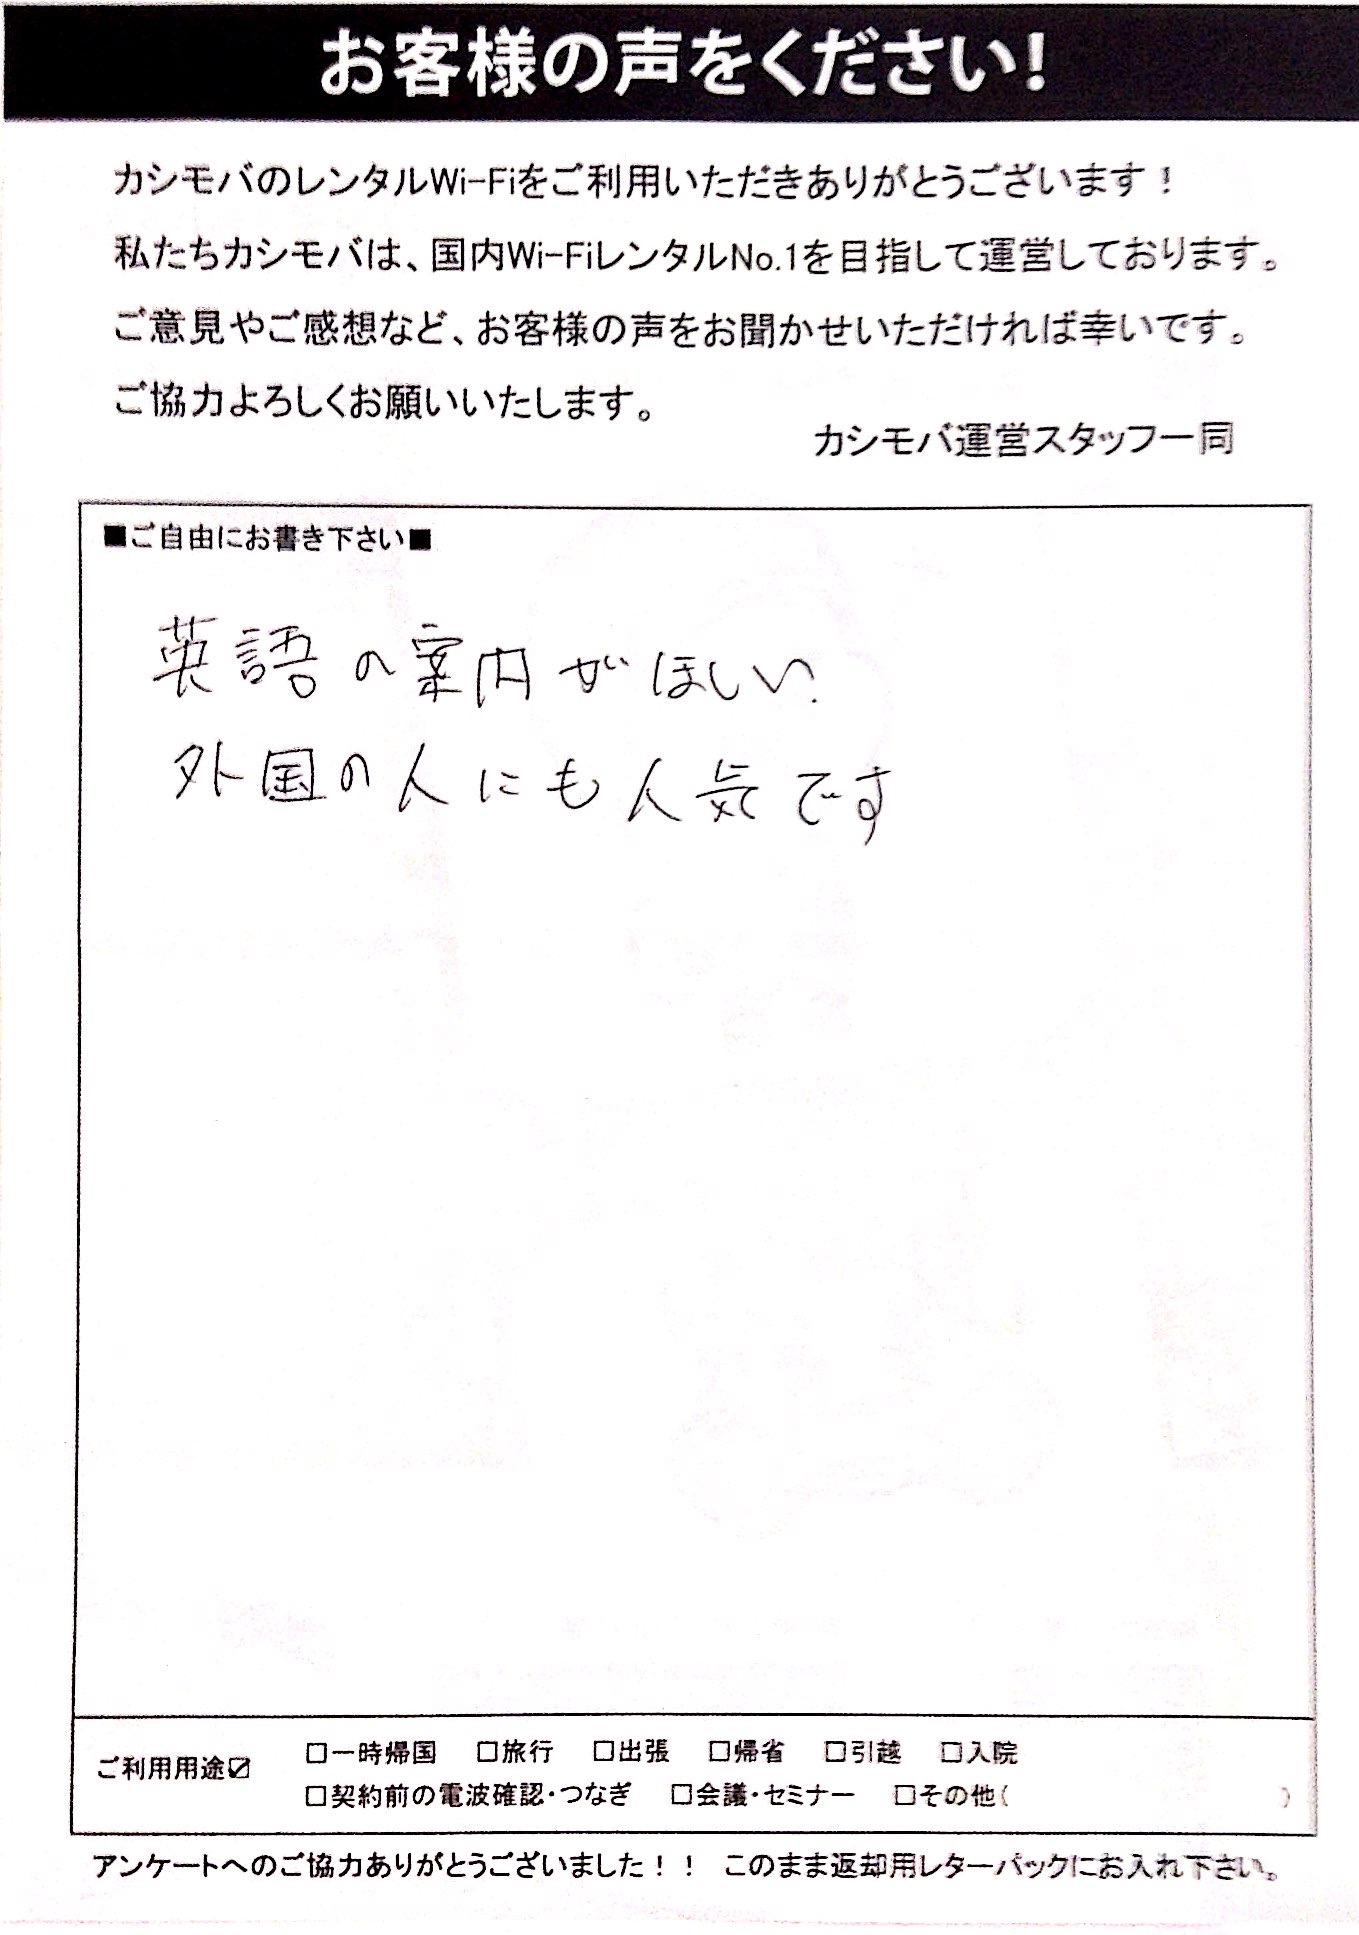 お客様の声をください!
カシモバのレンタルWi-Fiをご利用いただきありがとうございます！
私たちカシモバは、国内Wi-FiレンタルNo.1を目指して運営しております。
ご意見やご感想など、お客様の声をお聞かせいただければ幸いです。
ご協力よろしくお願いいたします。
カシモバ運営スタッフ一同
■ご自由にお書き下さい■
英語の案内がほしい.
外国の人にも人気です
ご利用用途☑ □一時帰国 □旅行 □出張 □帰省 □引越 □入院
□契約前の電波確認・つなぎ □会議・セミナー □その他( )
アンケートへのご協力ありがとうございました！！ このまま返却用レターパックにお入れ下さい。